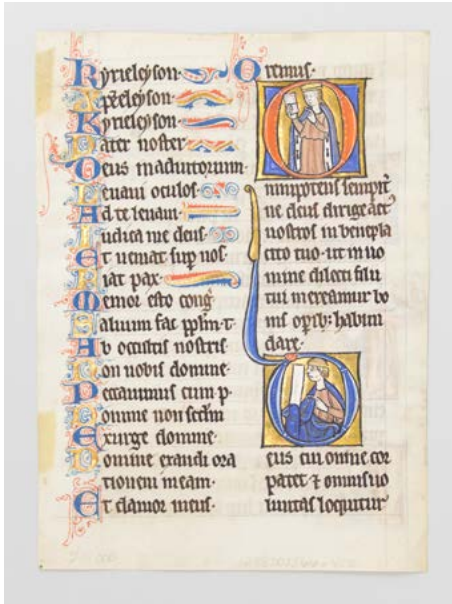 Kyrieleyson·
Xp̄eleyson·
Kyrieleyson·
Pater noster
Deus in adiutorium·
Leuaui oculos
Ad te leuaui·
Iudica me deus
Et ueniat sup nos·
Fiat pax·
Memor esto conḡ
Saluum fac pp̄lm· t·
Ab occultis nostris·
Non nobis domine·
Peccauimus cum p·
Domine non scd̄m
Exurge domine·
Domine exaudi ora
tionem meam·
Et clamor meus·
Oremus·
Omnipotens sempit̄
ne deus dirige act̄
nostros in benepla
cito tuo· ut in no
mine dilecti filii
tui mereamur bo
nis opib; habun
dare·
Deus cui omne cor
patet ⁊ omnis uo
luntas loquitur